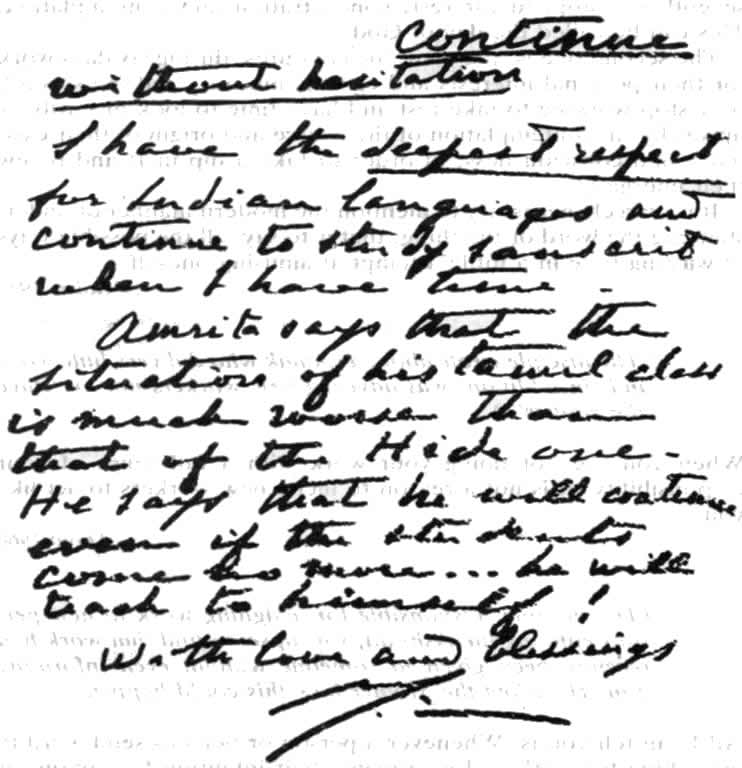 continue
without hesitation
I have the deepest respect
for Indian languages and
continue to study sanscrit
when I have time -
Amrita says that the
situation of his tamil class
is much worse than
that of the Hide one -
He says that he will continue
even if the students
come no more... he will
teach to himself!
With love and blessings